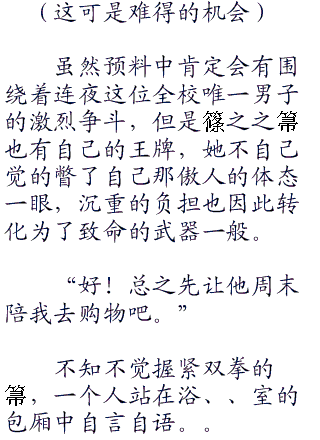 （这可是难得的机会）
虽然预料中肯定会有围
绕着连夜这位全校唯一男子
的激烈争斗，但是篠之之箒
也有自己的王牌，她不自己
觉的瞥了自己那傲人的体态
一眼，沉重的负担也因此转
化为了致命的武器一般。
“好！总之先让他周末
陪我去购物吧。”
不知不觉握紧双拳的
箒，一个人站在浴、、室的
包厢中自言自语。。